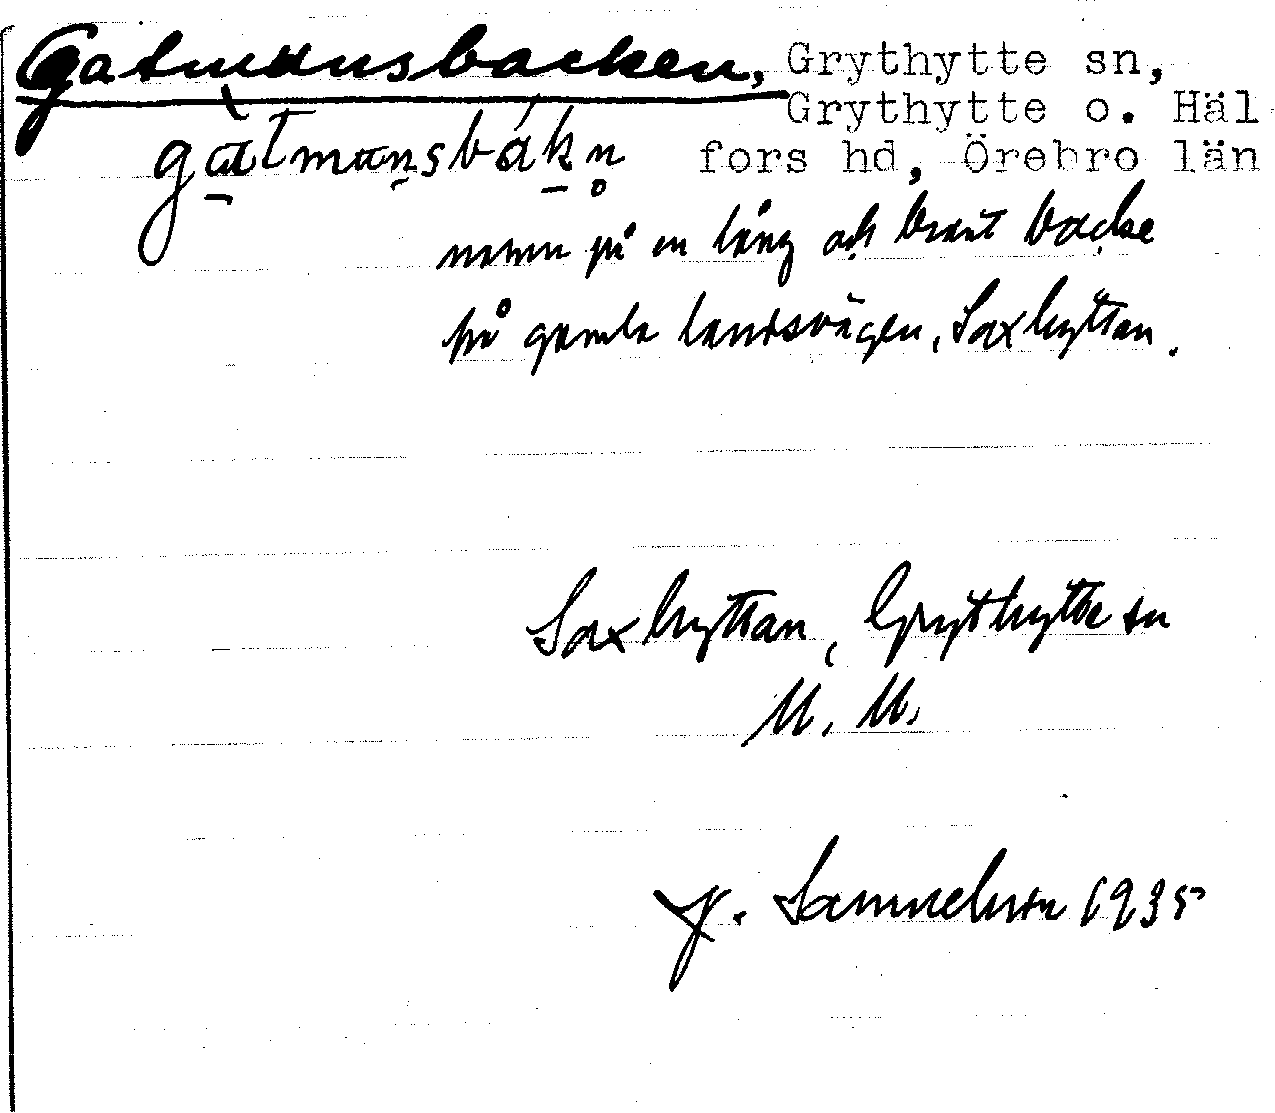 Gatmansbacken, Grythytte sn,
Grythytte o. Häl
fors hd, Örebro län
gatmansbakn
namn på en lång och brant backe
på gamla landsvägen, Saxhyttan.
Saxhyttan, Grythytte sn
M. M.
J. Samuelsson 1935